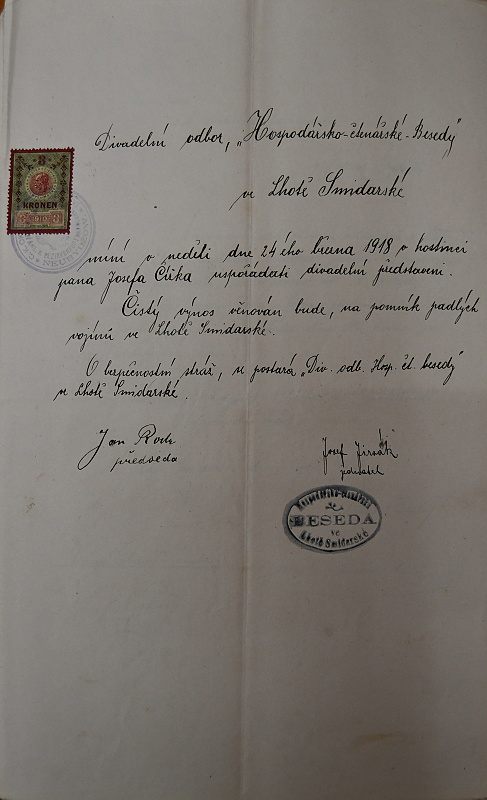 Divadelní odbor, „Hospodářsko-čtenářské-Besedy"
ve Lhotě Smidarské
KRONEN
míní v neděli dne 24 ého března 1918 v hostinci
pana Josefa Čílka uspořádati divadelní představení.
Čistý výnos věnován bude, na pomník padlých
vojínů ve Lhotě Smidarské.
O bezpečnostní stráž, se postará „Div. odb. Hosp. čt. besedy"
ve Lhotě Smidarské.
Jan
předseda
Josef Jirsák
jednatel
Hospodářsko-čtenářská
BESEDA
ve
Lhotě Smidarské